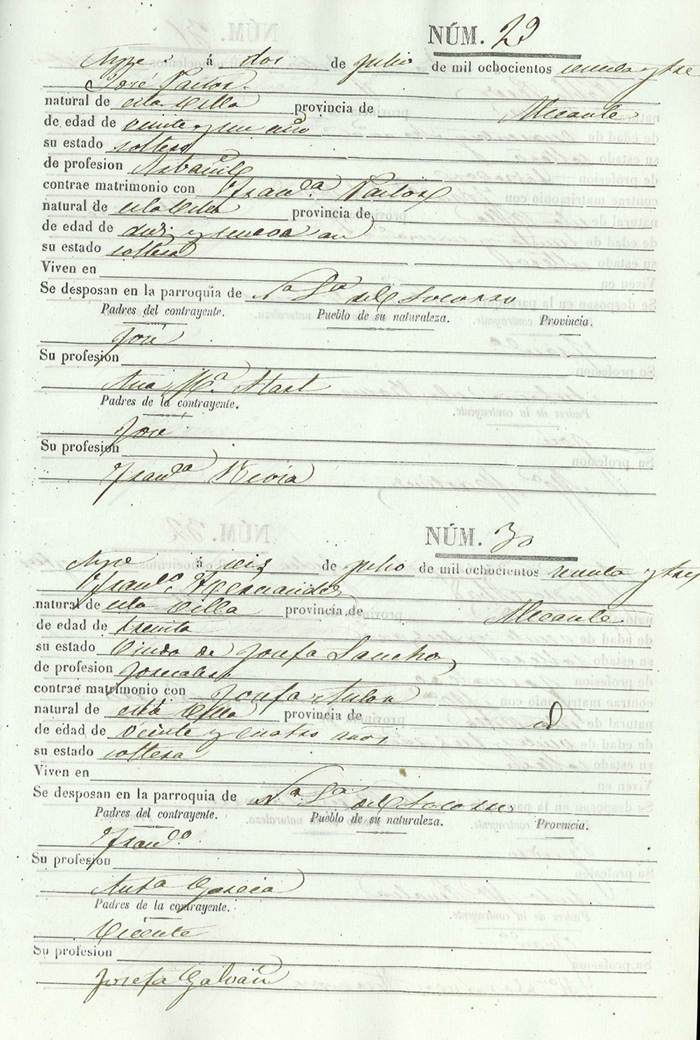 NÚM. 29
Aspe á dos de Julio de mil ochocientos noventa y tres
José Pastor
natural de esta Villa provincia de Alicante
de edad de veinte y un año
su estado soltero
de profesion Arbañil
contrae matrimonio con Franca. Pastor
natural de esta Villa provincia de
de edad de diez y nueve an
su estado soltera
Viven en
Se desposan en la parroquia de Na Sa del Socorro
Padres del contrayente. Pueblo de su naturaleza. Provincia.
José
Su profesion
Ana Ma.
Padres de la contrayente.
José
Su profesion
Franca
NÚM. 30
Aspe á seis de Julio de mil ochocientos noventa y tres
Franco. Hernandez
natural de esta Villa provincia de Alicante
de edad de treinta
su estado Viudo de Josefa Sancho
de profesion Jornalero
contrae matrimonio con Josefa
natural de esta Villa provincia de id
de edad de veinte y cuatro anos
su estado soltera
Viven en
Se desposan en la parroquia de Na Sa del Socorro
Padres del contrayente. Pueblo de su naturaleza. Provincia.
Franco.
Su profesion
Anta Garcia
Padres de la contrayente.
Vicente
Su profesion
Josefa Galvañ